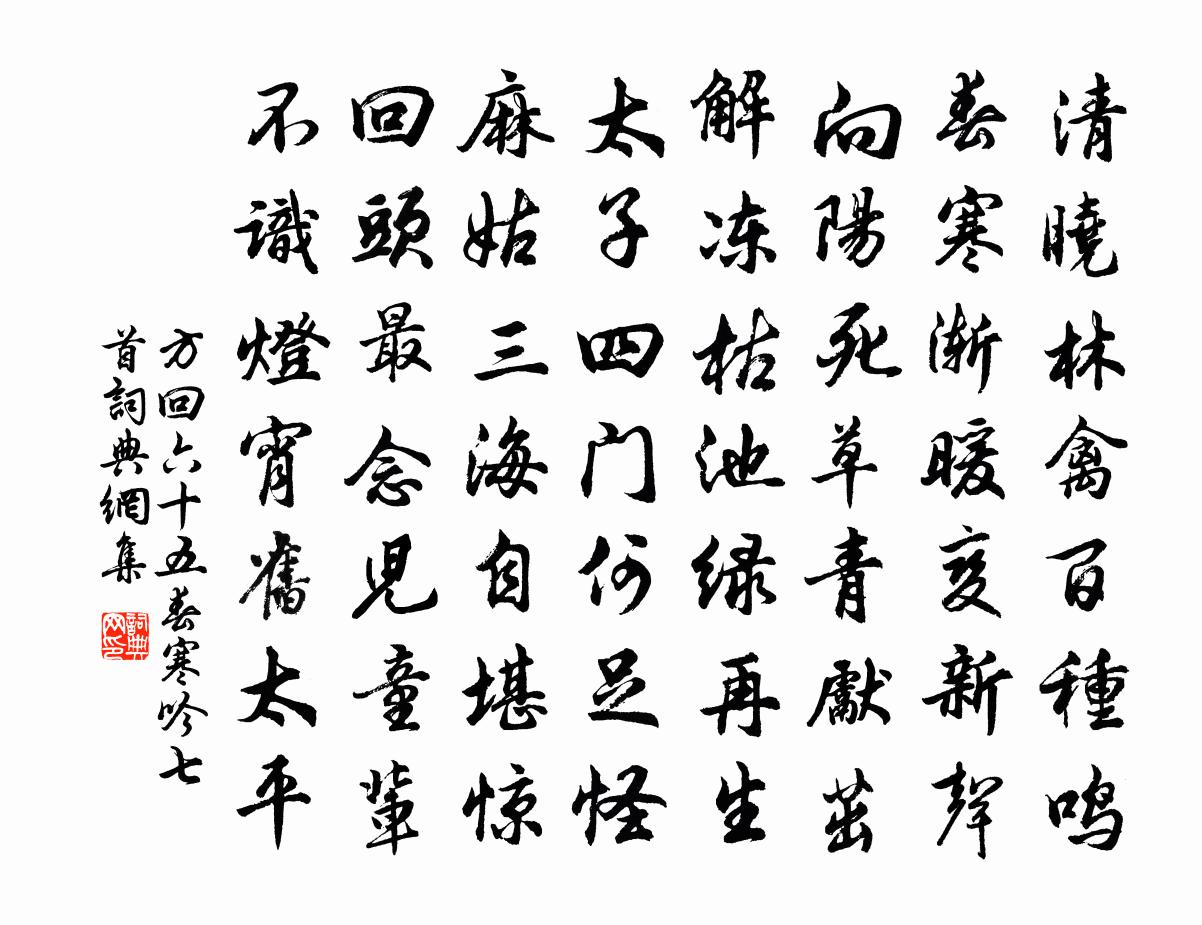 清曉林禽百種鳴
春寒漸暖變新聲
向陽死草青獻茁
解冻枯池绿再生
太子四门何足怪
麻姑三海自堪惊
回頭最念児童輩
不識燈宵舊太平
方回六十五春寒吟七
首詞典網集
詞典网印